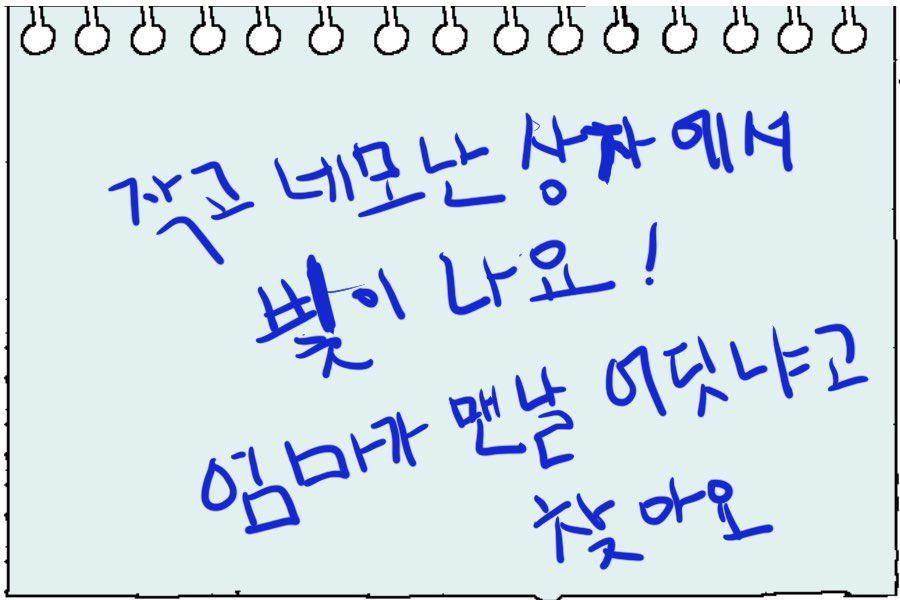 작고 네모난 상자에서
빛이 나요!
엄마가 맨날 어딧냐고
찾아요